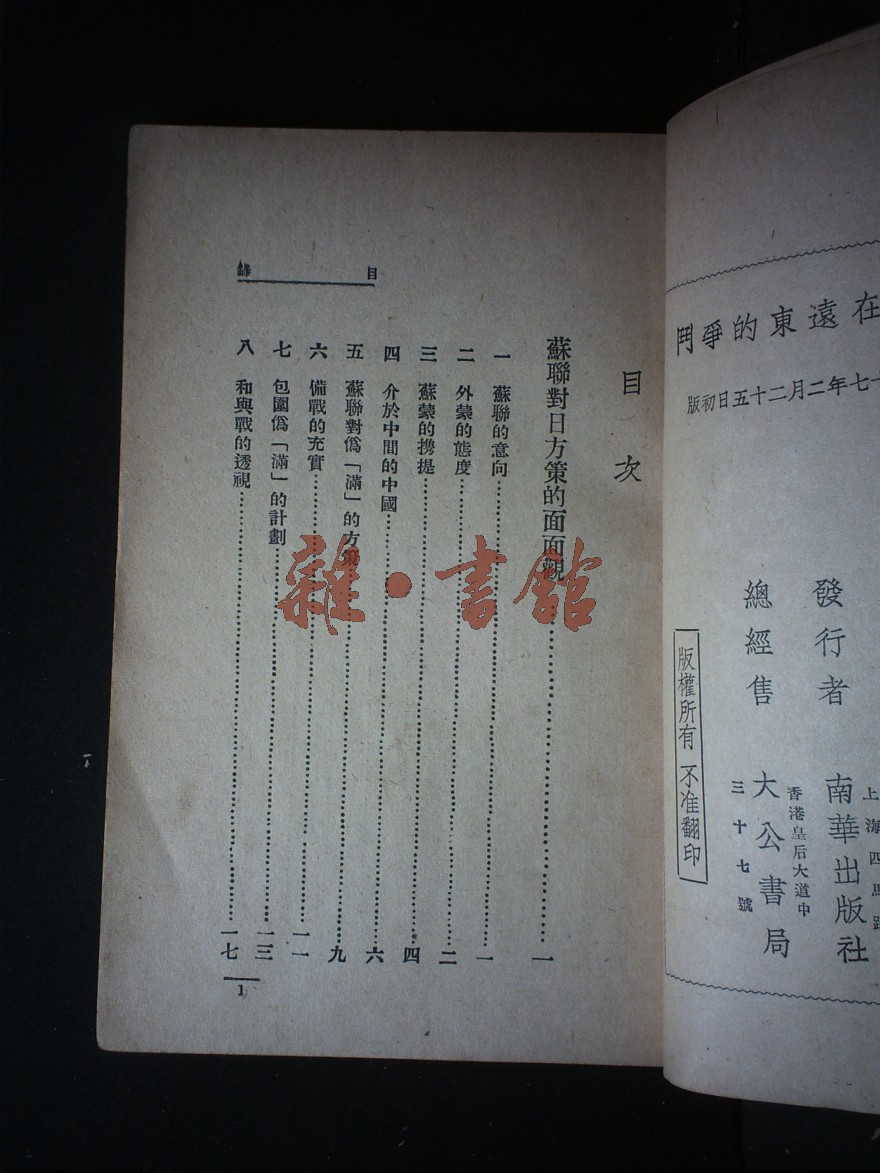 在遠東的爭鬥
十七年二月二十五日初版
發行者 南華出版社
上海四馬路
總經售 大公書局
香港皇后大道中
三十七號
版權所有 不准翻印
目
目次
蘇聯對日方策的面面觀……一
一 蘇聯的意向……一
二 外蒙的態度……二
三 蘇蒙的携提……四
四 介於中間的中國……六
五 蘇聯對僞「滿」的方策……九
六 備戰的充實……一一
七 包圍僞「滿」的計劃……一三
八 和與戰的透視……一七
1
雜·書館